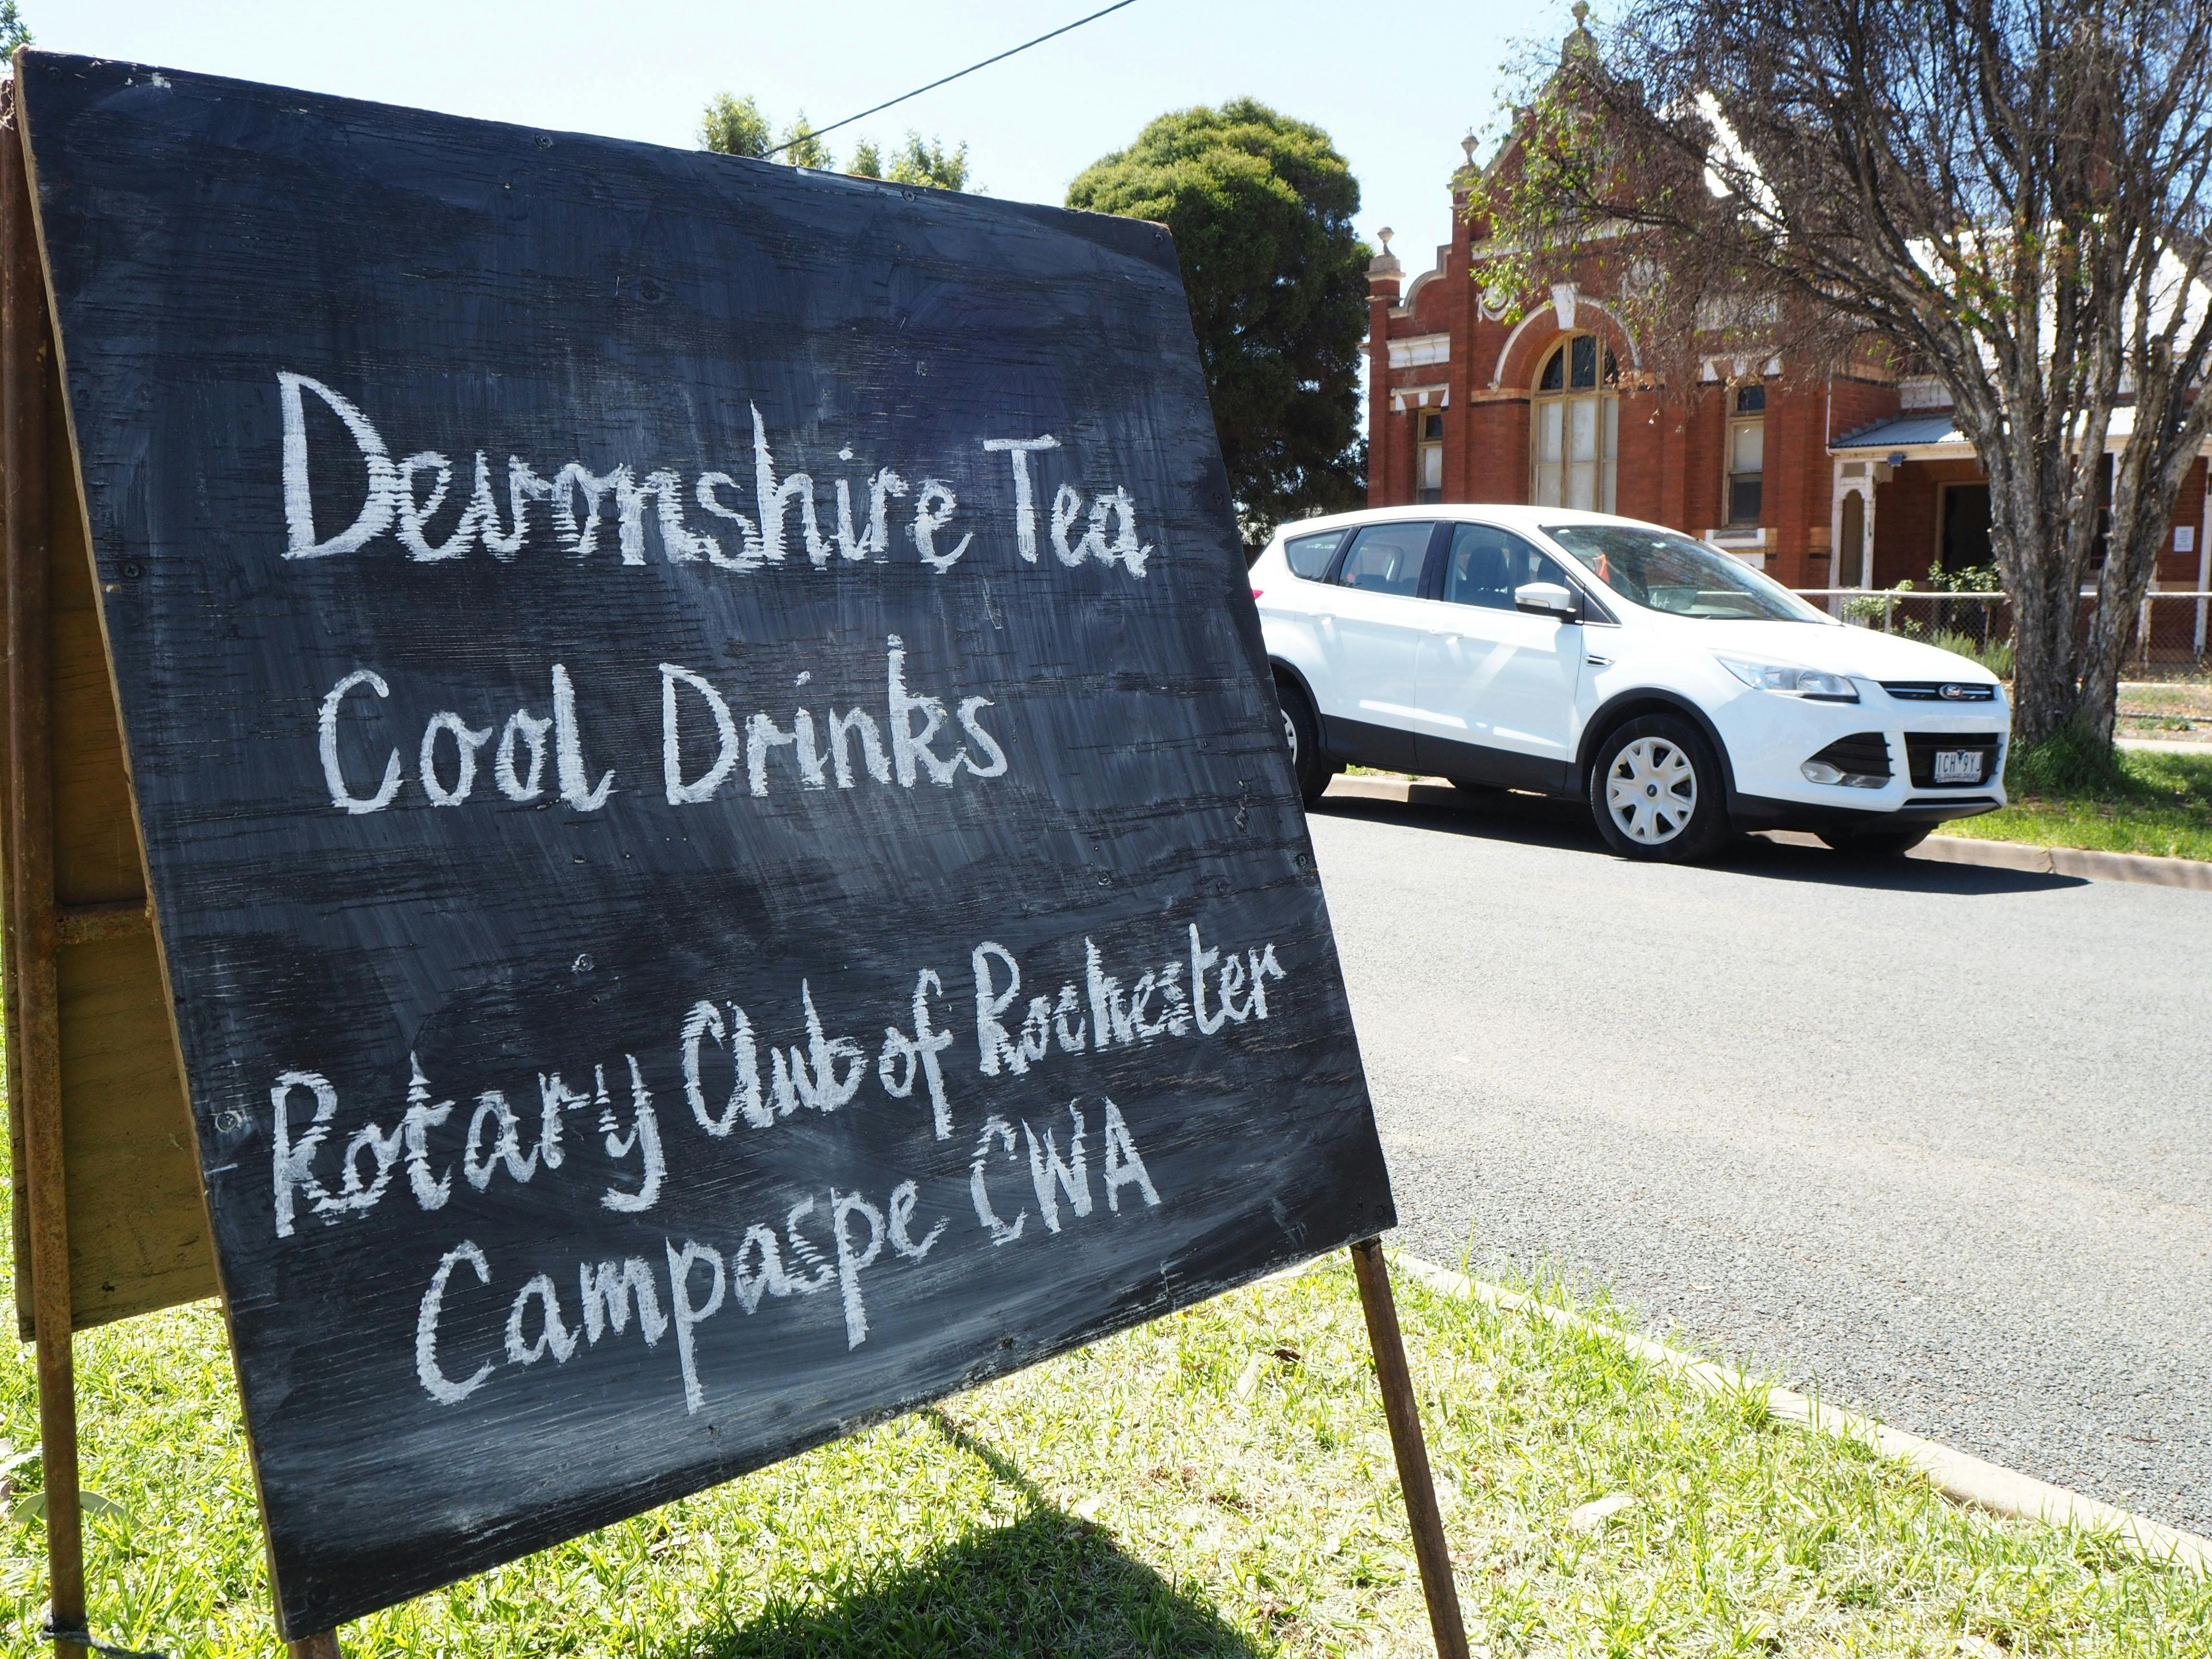 Devonshire Tea
Cool Drinks
Rotary Club of Rochester
Campaspe CWA
1CH 9YJ